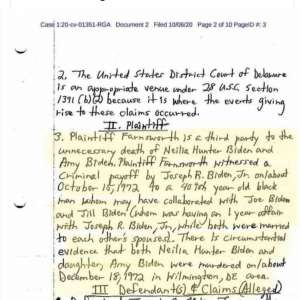 Case 1:20-cv-01351-RGA Document 2 Filed 10/06/20 Page 2 of 10 PageID #: 3
2. The United States District Court of Delaware
is an appropriate venue under 28 U.S.C. section
1391 (b)(2) because it is where the events giving
rise to these claims occurred.
II. Plaintiff
3. Plaintiff Farnsworth is a third party to the
unnecessary death of Neilia Hunter Biden and
Amy Biden. Plaintiff Farnsworth witnessed a
criminal payoff by Joseph R. Biden, Jr. on/about
October 15, 1972 to a 40ish year old black
man whom may have collaborated with Joe Biden
and Jill Biden (whom was having an 1 year affair
with Joseph R. Biden, Jr., while both were married
to each other's spouses). There is circumstantial
evidence that both Neilia Hunter Biden and
daughter, Amy Biden were murdered on/about
December 18, 1972 in Wilmington, DE area.
III Defendant(s) & Claims (Alleged)